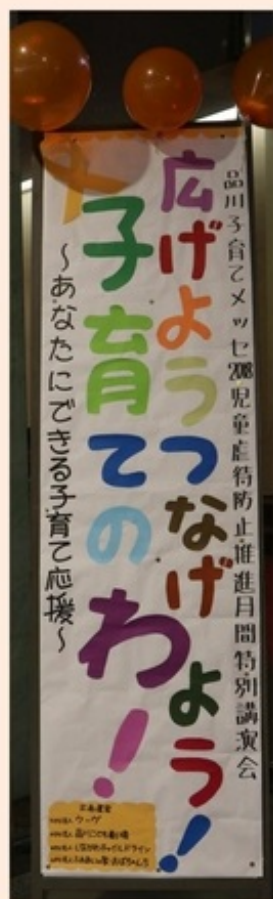 品川子育てメッセ2018児童虐待防止推進月間特別講演会
広げようつなげよう!
子育てのわ!
~あなたにできる子育て応援~